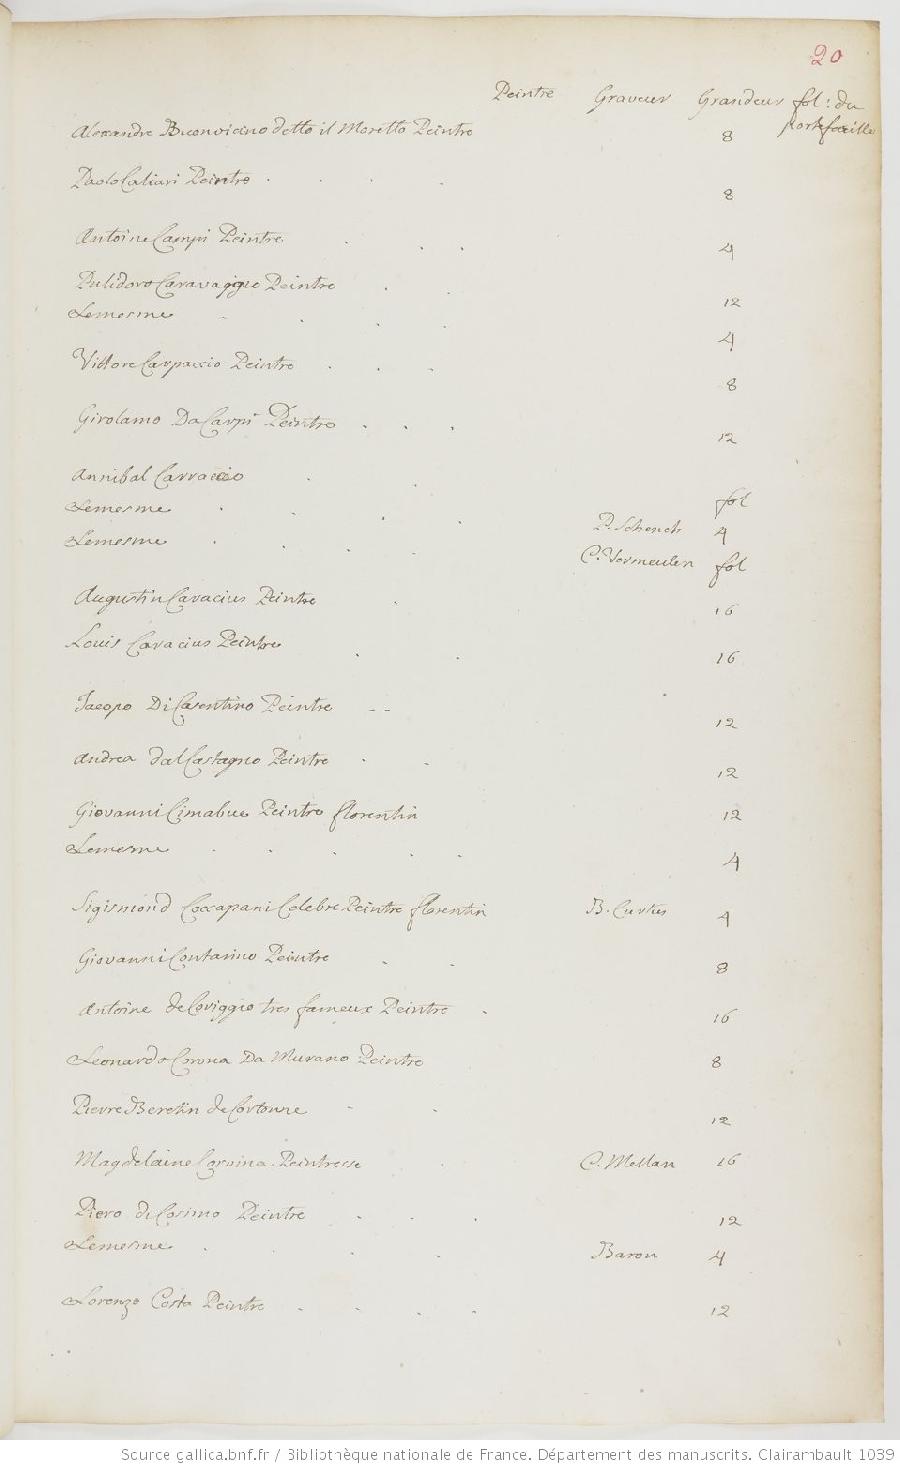 20
Peintre Graveur Grandeur fol: du portefeuille
Alexandre Buonvicino detto il Moretto Peintre 8
Paolo Caliari Peintre 8
Antoine Campi Peintre 4
Pulidoro Caravaggio Peintre 12
Lemesme 4
Vittore Carpaccio Peintre 8
Girolamo Da Carpi Peintre 12
Annibal Carraccio fol
Lemesme P. Schench 4
Lemesme C. Vermeulen fol
Augustin Caracius Peintre 16
Louis Caracius Peintre 16
Jacopo Di Casentino Peintre -- 12
Andrea dal Castagno Peintre 12
Giovanni Cimabue Peintre florentin 12
Lemesme 4
Sigismond Coccapani Celebre Peintre florentin B. Curtus 4
Giovanni Contarino Peintre 8
Antoine de Coriggio tres fameux Peintre 16
Leonardo Corona Da Murano Peintre 8
Pierre Beretin de Cortonne 12
Magdelaine Corvina Peintresse C. Mellan 16
Piero di Cosimo Peintre 12
Lemesme Baron 4
Lorenzo Costa Peintre 12
Source gallica.bnf.fr / Bibliothèque nationale de France. Département des manuscrits. Clairambault 1039